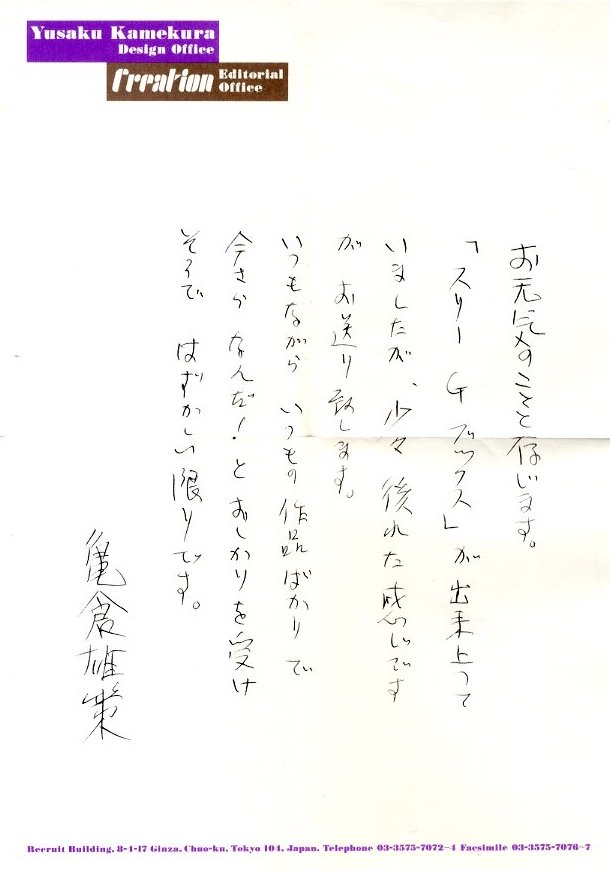 Yusaku Kamekura
Design Office
Creation Editorial
Office
お元気のことと存じます。
「スリー G ブックス」が出来上って
いましたが、少々後れた感じです
が お送り致します。
いつもながら いつもの作品ばかりで
今さら なんだ！とおしかりを受け
そうで はずかしい限りです。
亀倉雄策
Recruit Building, 8-4-17 Ginza, Chuo-ku, Tokyo 104, Japan. Telephone 03-3575-7072~4 Facsimile 03-3575-7076~7